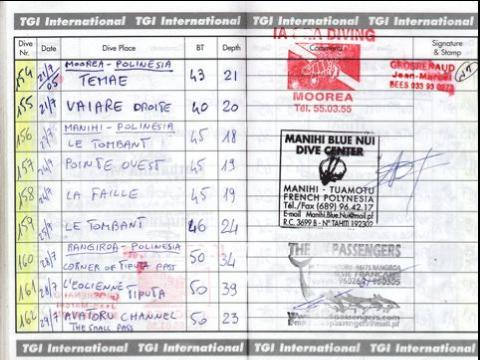 TGI International TGI International
TGI International TGI International
Dive Nr. Date Dive Place BT Depth Comments Signature & Stamp
154 21/7 05 MOOREA - POLINESIA
TEMAE 43 21
155 21/7 VAIARE DROITE 40 20
156 MANIHI - POLINESIA
LE TOMBANT 45 18
157 24/7 POINTE OVEST 45 19
158 24/7 LA FAILLE 45 19
159 LE TOMBANT 46 24
160 28/7 RANGIROA - POLINESIA
CORNER OF TIPUTA PASS 50 34
161 28/7 L'EOLIENNE TIPUTA 50 39
162 29/7 AVATORU CHANNEL 50 23
THE SMALL PASS
DIVING
MOOREA
Tél. 55.03.55
GROSRENAUD
Jean-Marcel
MANIHI BLUE NUI
DIVE CENTER
MANIHI - TUAMOTU
FRENCH POLYNESIA
Tél./Fax (689) 96.42.17
E-mail Manihi.Blue.Nui@mail.pf
R.C. 3699 B - N° TAHITI 192302
THE PASSENGERS
TGI International TGI International
TGI International TGI International